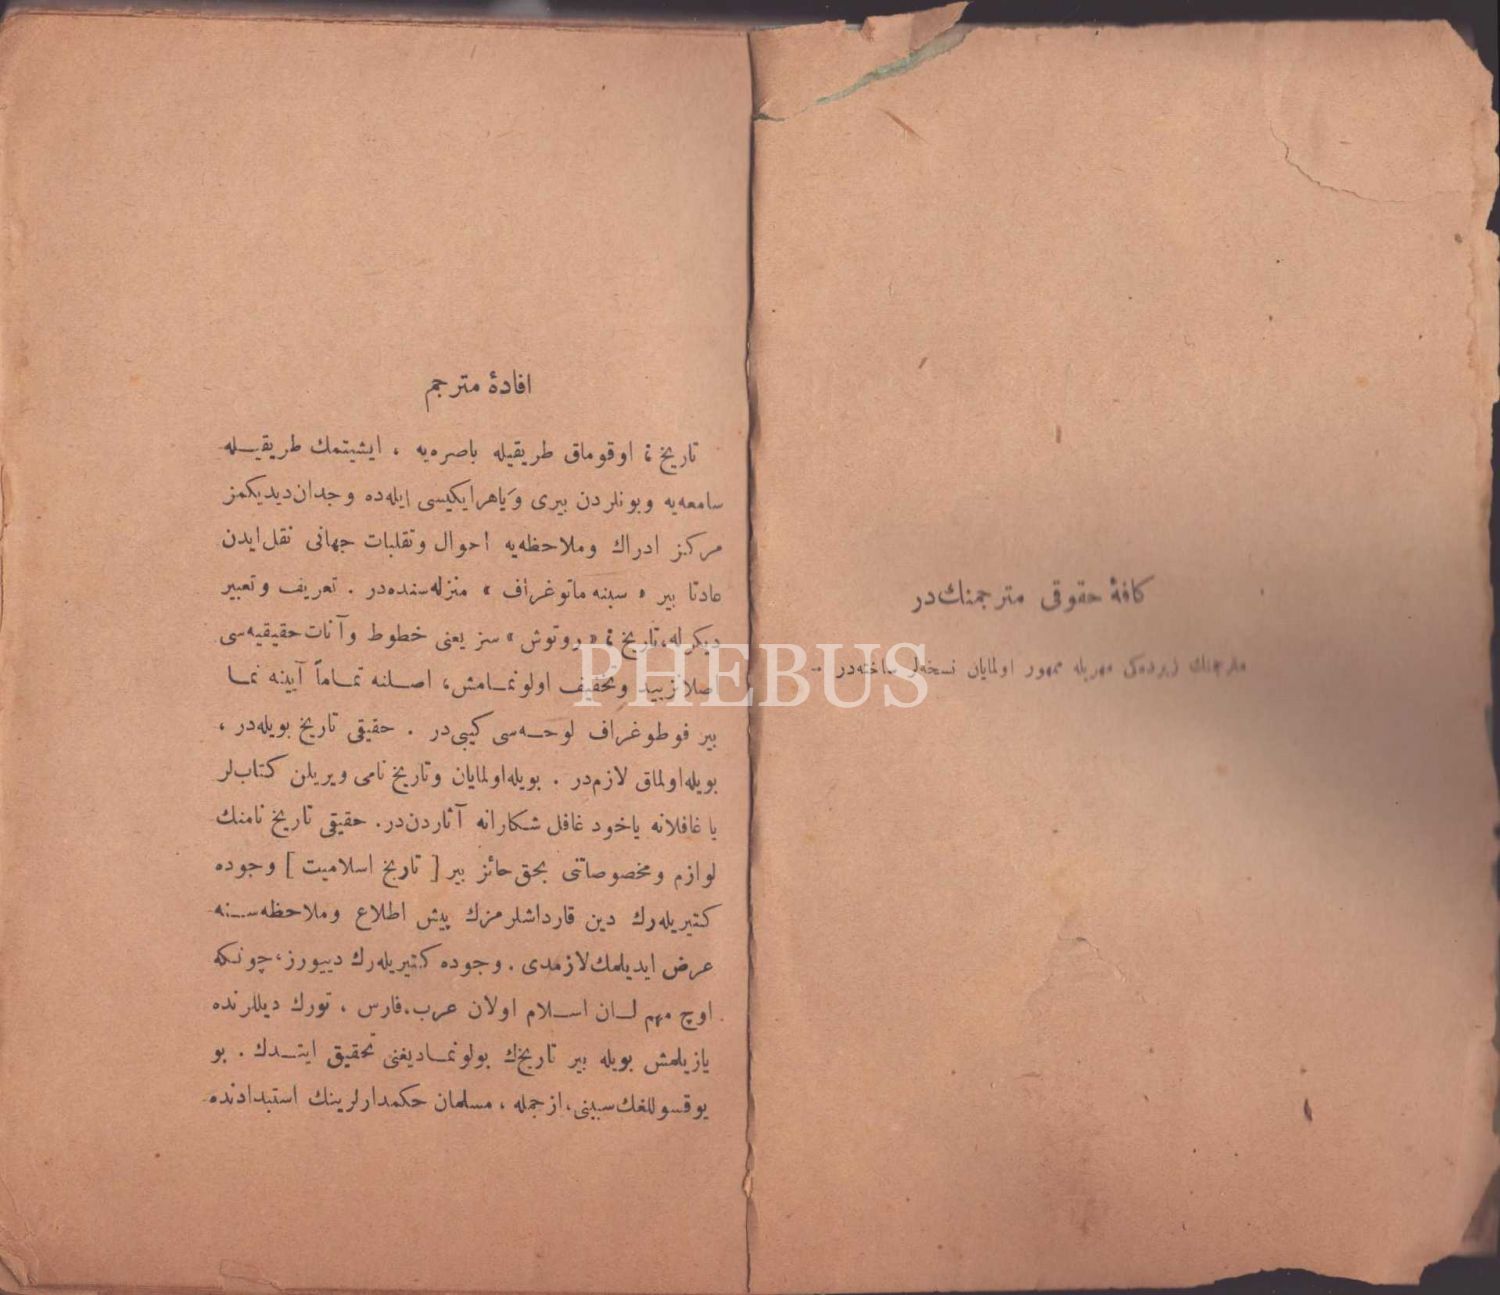 كافهٔ حقوقی مترجمنك‌در
مترجمنك زیرده‌كی مهریله ممهور اولمایان نسخه‌لر ساخته‌در
افادهٔ مترجم
تاریخ ؛ اوقوماق طریقیله باصره‌یه ، ایشیتمك طریقیله
سامعه‌یه وبونلردن بیری ویاهرایكیسی ایله‌ده وجدان‌دیدیكمز
مركز ادراك وملاحظه‌یه احوال وتقلبات جهانی نقل‌ایدن
عادتا بیر « سینه‌ماتوغراف » منزله‌سنده‌در . تعریف وتعبیر
دیكرله، تاریخ ؛ « روتوش » سز یعنی خطوط وآنات حقیقیه‌سی
اصلا تزیید وتخفیف اولونمامش، اصلنه تماماً آیینه نما
بیر فوطوغراف لوحه‌سی كیبی‌در . حقیقی تاریخ بویله‌در ،
بویله‌اولماق لازم‌در . بویله‌اولمایان وتاریخ نامی ویریلن كتاب‌لر
یا غافلانه یاخود غافل شكارانه آثاردن‌در. حقیقی تاریخ نامنك
لوازم ومخصوصاتنی بحق حائز بیر [ تاریخ اسلامیت ] وجوده
كتیریله‌رك دین قارداشلرمزك پیش اطلاع وملاحظه‌سنه
عرض ایدیلمك‌لازمدی . وجوده كتیریله‌رك دییورز، چونكه
اوچ مهم لسان اسلام اولان عرب، فارس ، تورك دیللرنده
یازیلمش بویله بیر تاریخك بولونمادیغنی تحقیق ایتدك . بو
یوقسوللغك‌سببنی، ازجمله ، مسلمان حكمدارلرینك استبدادنده
PHEBUS